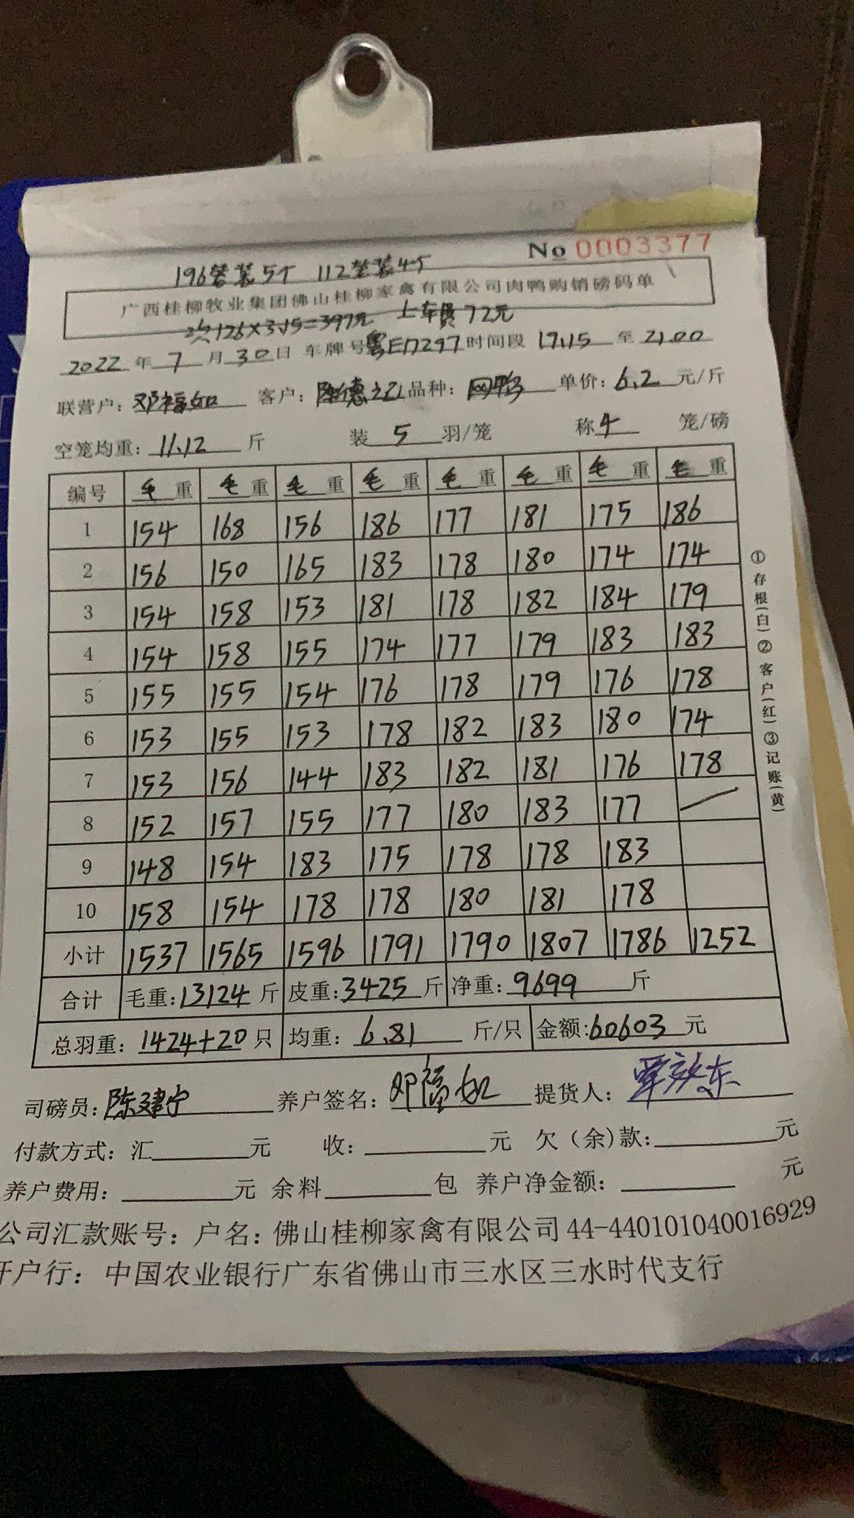 No 0003377
196笼装5个 112笼装4个
广西桂柳牧业集团佛山桂柳家禽有限公司肉鸭购销磅码单
次126×3.15=397元 上车费72元
2022年7月30日 车牌号粤E17297时间段 17.15 至 21.00
联营户: 邓福如 客户: 陆德之乙 品种: 网鸭 单价: 6.2 元/斤
空笼均重: 11.12 斤 装 5 羽/笼 称 4 笼/磅
编号 毛重 毛重 毛重 毛重 毛重 毛重 毛重 毛重
1 154 168 156 186 177 181 175 186
2 156 150 165 183 178 180 174 174
3 154 158 153 181 178 182 184 179
4 154 158 155 174 177 179 183 183
5 155 155 154 176 178 179 176 178
6 153 155 153 178 182 183 180 174
7 153 156 144 183 182 181 176 178
8 152 157 155 177 180 183 177
9 148 154 183 175 178 178 183
10 158 154 178 178 180 181 178
小计 1537 1565 1596 1791 1790 1807 1786 1252
合计 毛重: 13124 斤 皮重: 3425 斤 净重: 9699 斤
总羽重: 1424+20 只 均重: 6.81 斤/只 金额: 60603 元
司磅员: 陈建宁 养户签名: 邓福如 提货人:
付款方式: 汇 元 收: 元 欠(余)款: 元
养户费用: 元 余料 包 养户净金额: 元
公司汇款账号: 户名: 佛山桂柳家禽有限公司 44-440101040016929
开户行: 中国农业银行广东省佛山市三水区三水时代支行
①存根(白)②客户(红)③记账(黄)